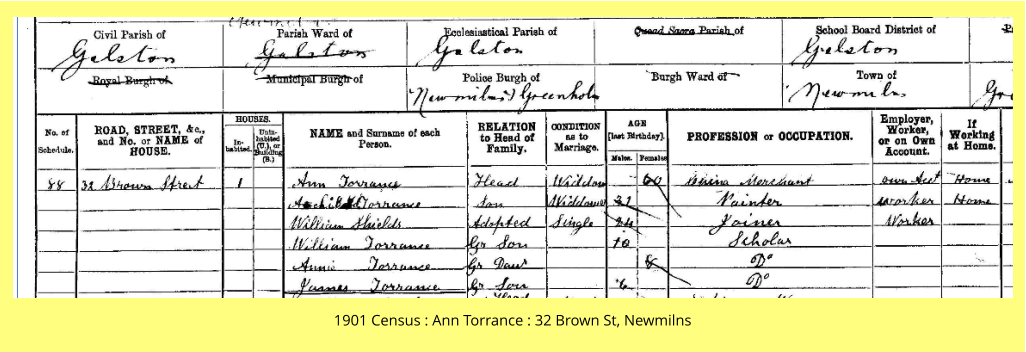 Civil Parish of Parish Ward of Ecclesiastical Parish of Quoad Sacra Parish of School Board District of
Galston Galston Galston Galston
Royal Burgh of Municipal Burgh of Police Burgh of Burgh Ward of Town of
Newmilns & Greenholm Newmilns
No. of Schedule. ROAD, STREET, &c., and No. or NAME of HOUSE. HOUSES. In-habited. Unin-habited (U.), or Building (B.) NAME and Surname of each Person. RELATION to Head of Family. CONDITION as to Marriage. AGE [last Birthday]. Males. Females. PROFESSION or OCCUPATION. Employer, Worker, or on Own Account. If Working at Home.
88 32 Brown Street 1 Ann Torrance Head Widow 60 China Merchant own Acct Home
Archibald Torrance Son Widower Painter worker Home
William Shields Adopted Single 24 Joiner Worker
William Torrance Gr Son 10 Scholar
Annie Torrance Gr Daur 8 Do
James Torrance Gr Son 6 Do
1901 Census : Ann Torrance : 32 Brown St, Newmilns